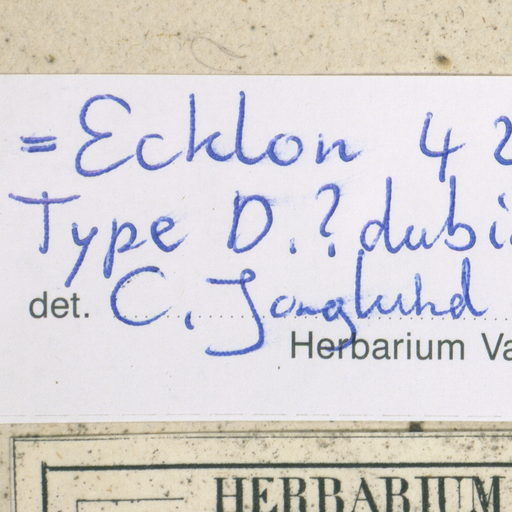 = Ecklon 42
Type D. ? dubi
det. C. Jonglund
Herbarium Va
HERBARIUM